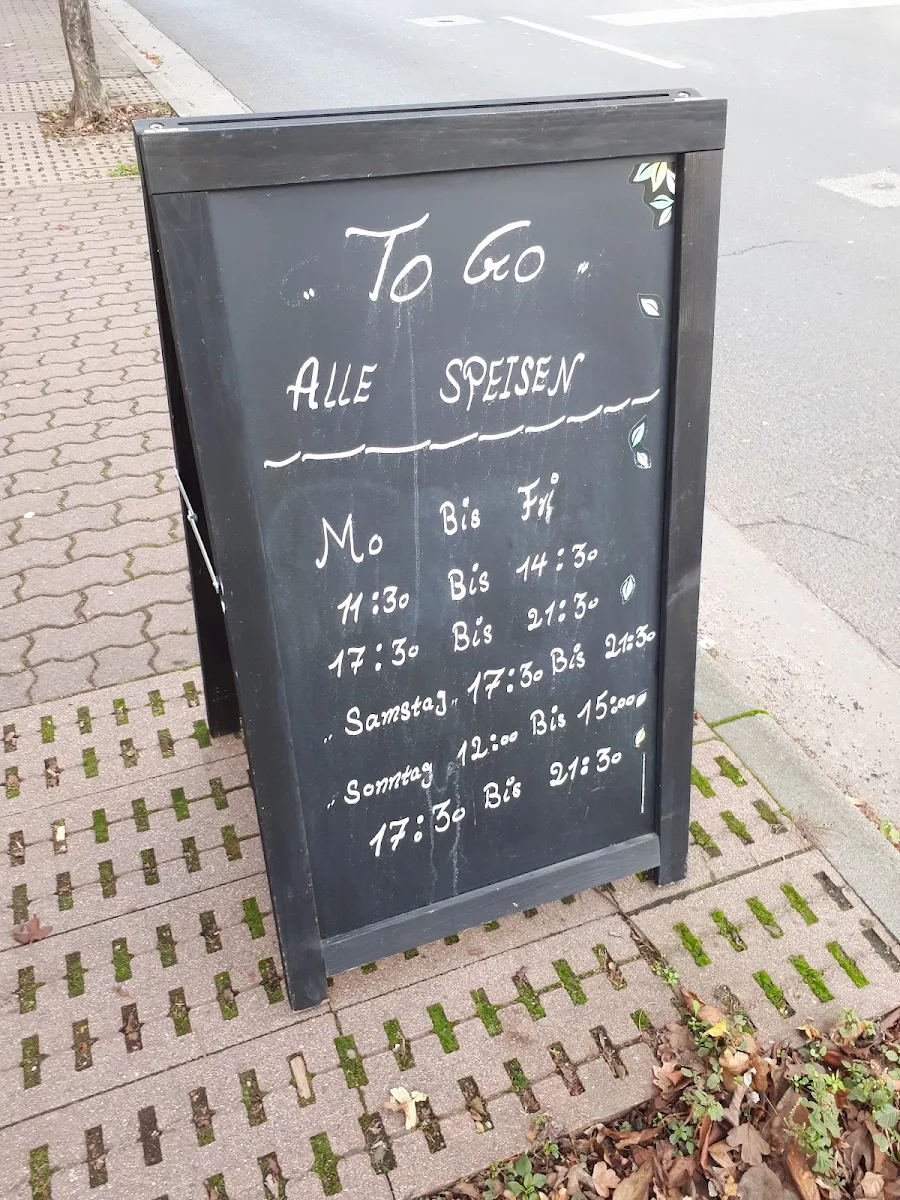 „ To Go "
ALLE SPEISEN
Mo Bis Fri
11:30 Bis 14:30
17:30 Bis 21:30
„Samstag„ 17:30 Bis 21:30
„Sonntag 12:00 Bis 15:00
17:30 Bis 21:30